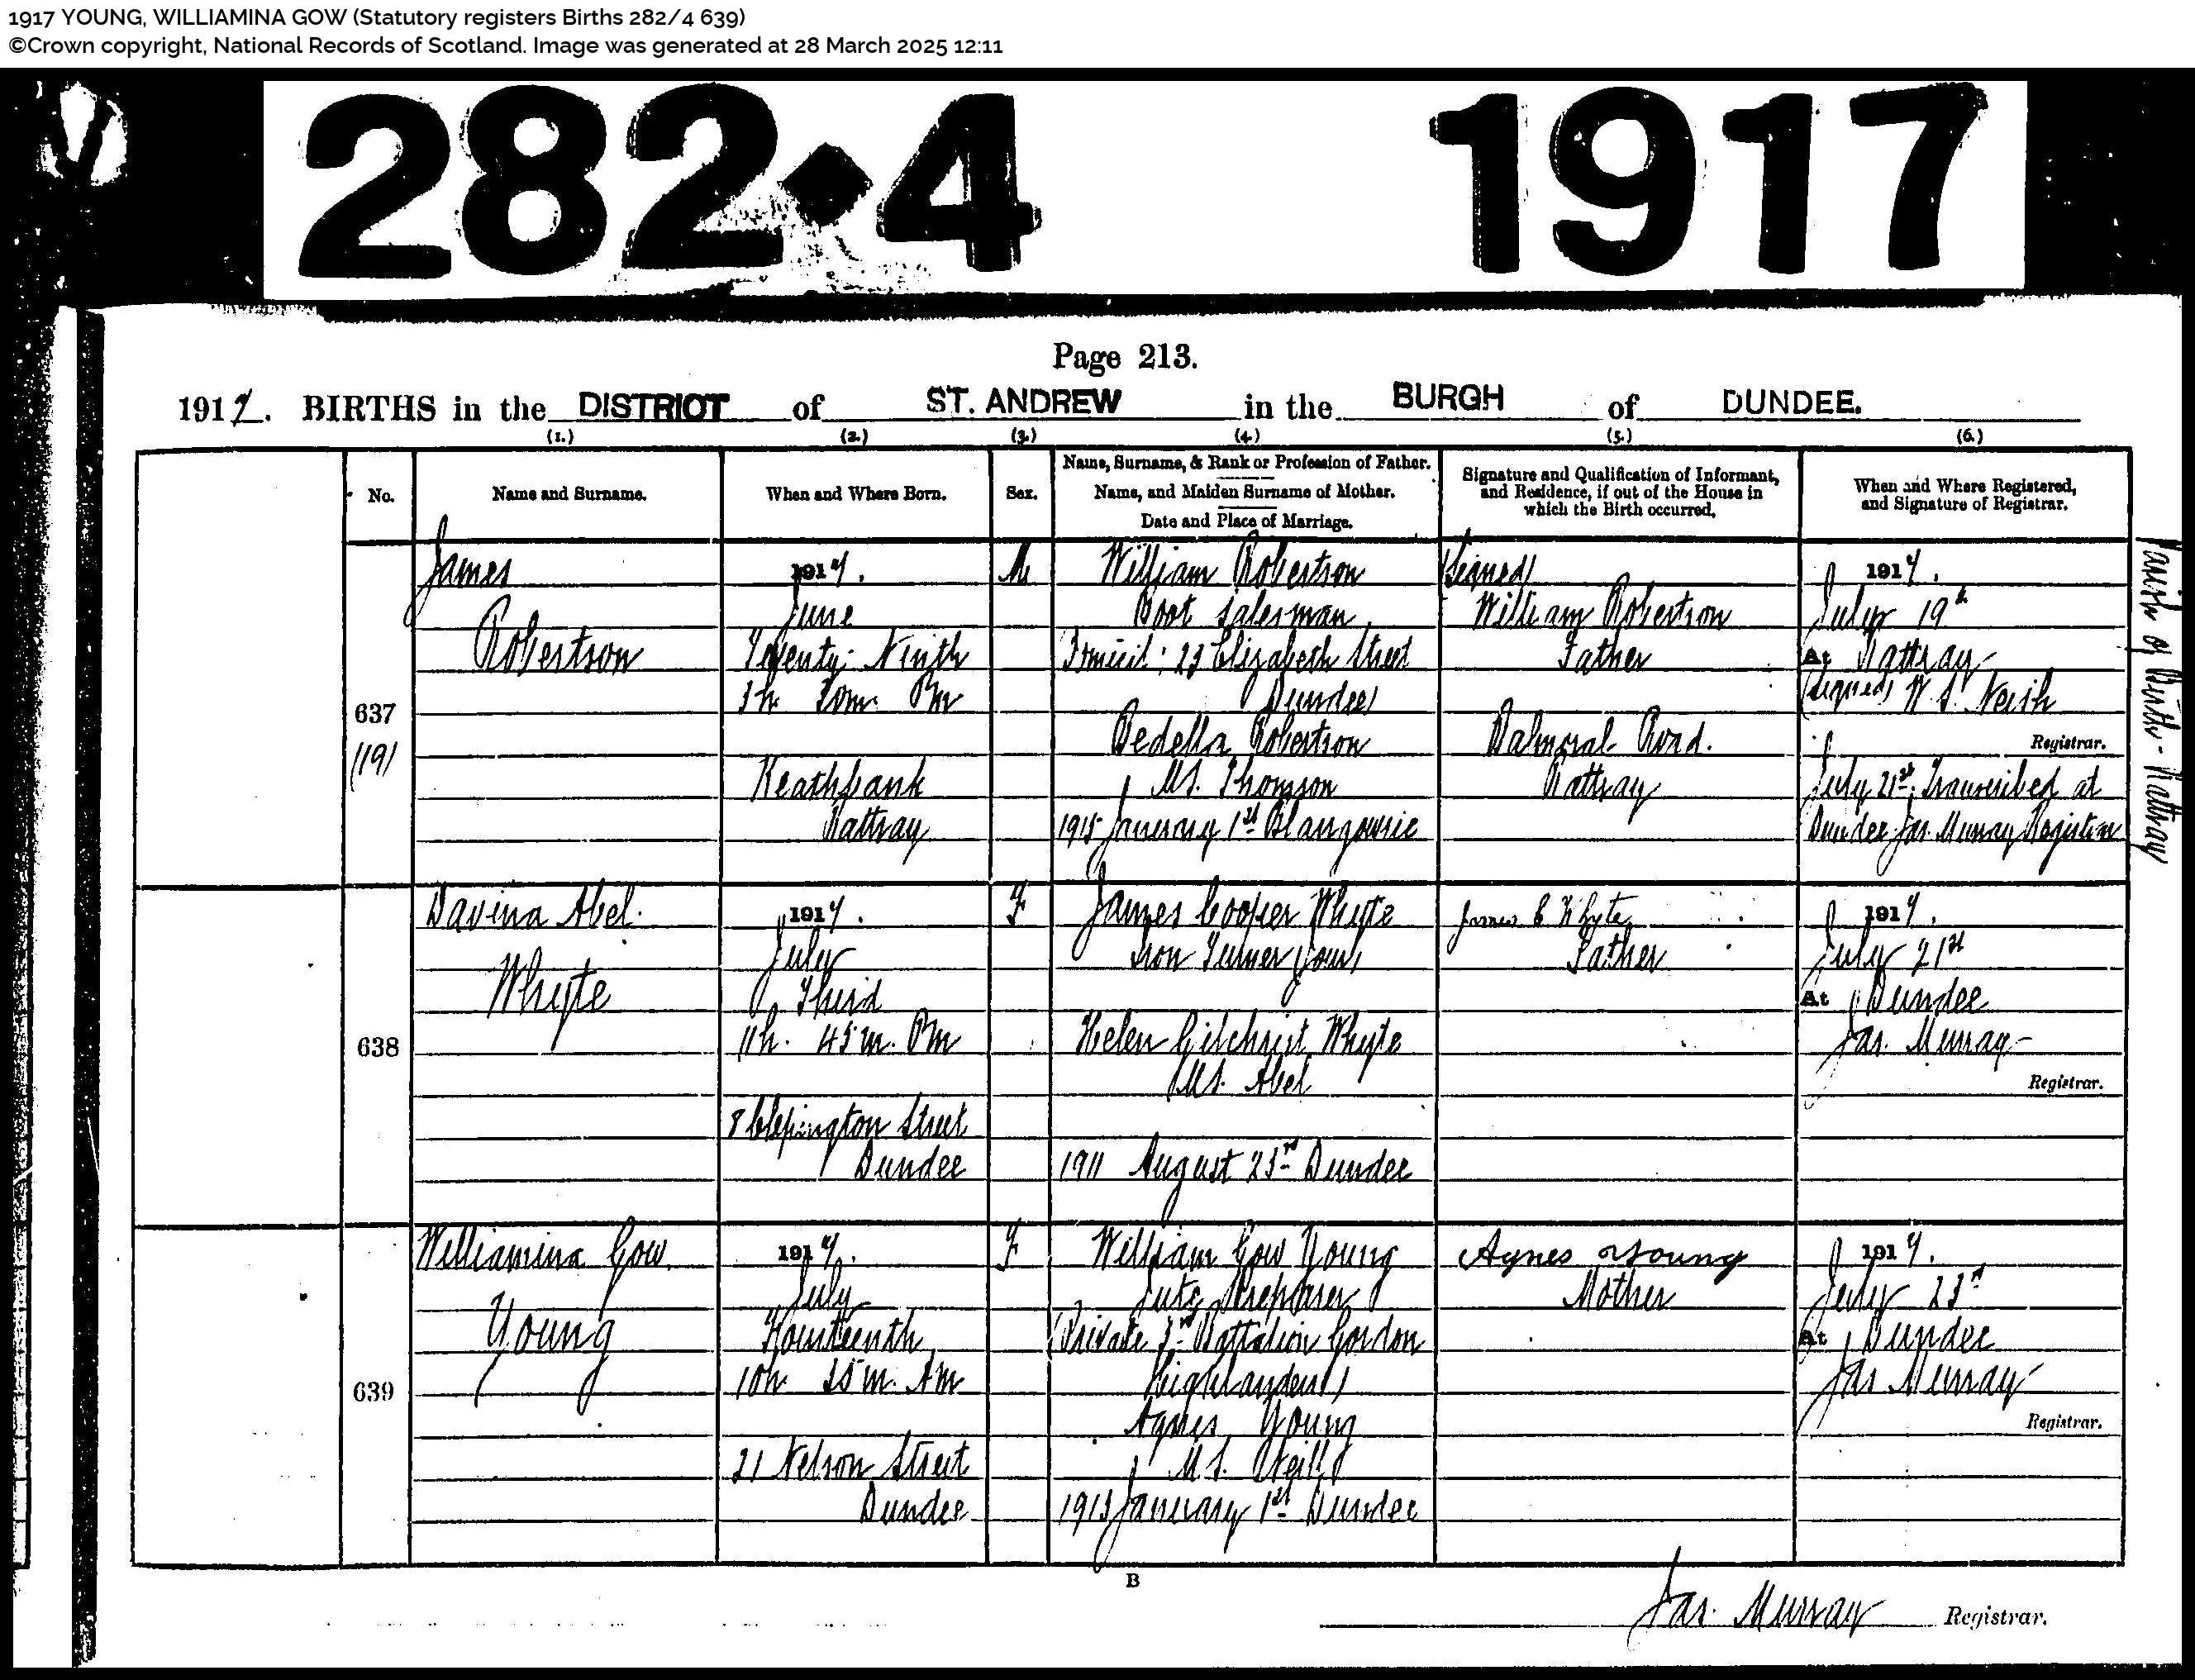 1917 YOUNG, WILLIAMINA GOW (Statutory registers Births 282/4 639)
©Crown copyright, National Records of Scotland. Image was generated at 28 March 2025 12:11
282·4 1917
Page 213.
1917. BIRTHS in the DISTRICT of ST. ANDREW in the BURGH of DUNDEE.
(1.) (2.) (3.) (4.) (5.) (6.)
No.
Name and Surname.
When and Where Born.
Sex.
Name, Surname, & Rank or Profession of Father.
Name, and Maiden Surname of Mother.
Date and Place of Marriage.
Signature and Qualification of Informant,
and Residence, if out of the House in
which the Birth occurred.
When and Where Registered,
and Signature of Registrar.
637
(19)
James
Robertson
1917.
June
Twenty-Ninth
Pm
Keathbank
Rattray
M
William Robertson
Boot Salesman
(Domicil: 23 Elizabeth Street
Dundee)
Bedella Robertson
M.S. Thomson
1915 January 1st Blairgowrie
(Signed)
William Robertson
Father
Balmoral Road.
Rattray
1917.
July 19th
At Rattray
(Signed) W. S. Neish
Registrar.
July 21st. Transcribed at
Dundee Jas. Murray Registrar
Parish of Birth - Rattray
638
Davina Abel
Whyte
1917.
July
Third
11h. 45m. Pm
8 Clepington Street
Dundee
F
James Cooper Whyte
Iron Turner (Jour)
Helen Gilchrist Whyte
M.S. Abel
1911 August 23rd Dundee
James C Whyte
Father
1917.
July 21st
At Dundee
Jas. Murray
Registrar.
639
Williamina Gow
Young
1917.
July
Fourteenth
10h. Am
21 Nelson Street
Dundee
F
William Gow Young
Jute Preparer
(Private 3rd Battalion Gordon
Highlanders)
Agnes Young
M.S. Neill
1913 January 1st Dundee
Agnes Young
Mother
1917.
July 23rd
At Dundee
Jas Murray
Registrar.
B
Jas. Murray Registrar.